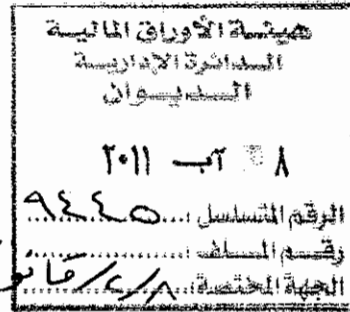 هيئة الأوراق المالية
الدائرة الإدارية
الديوان
٨ آب ٢٠١١
الرقم المتسلسل : ٩٤٤٥
رقم الملف :
الجهة المختصة :